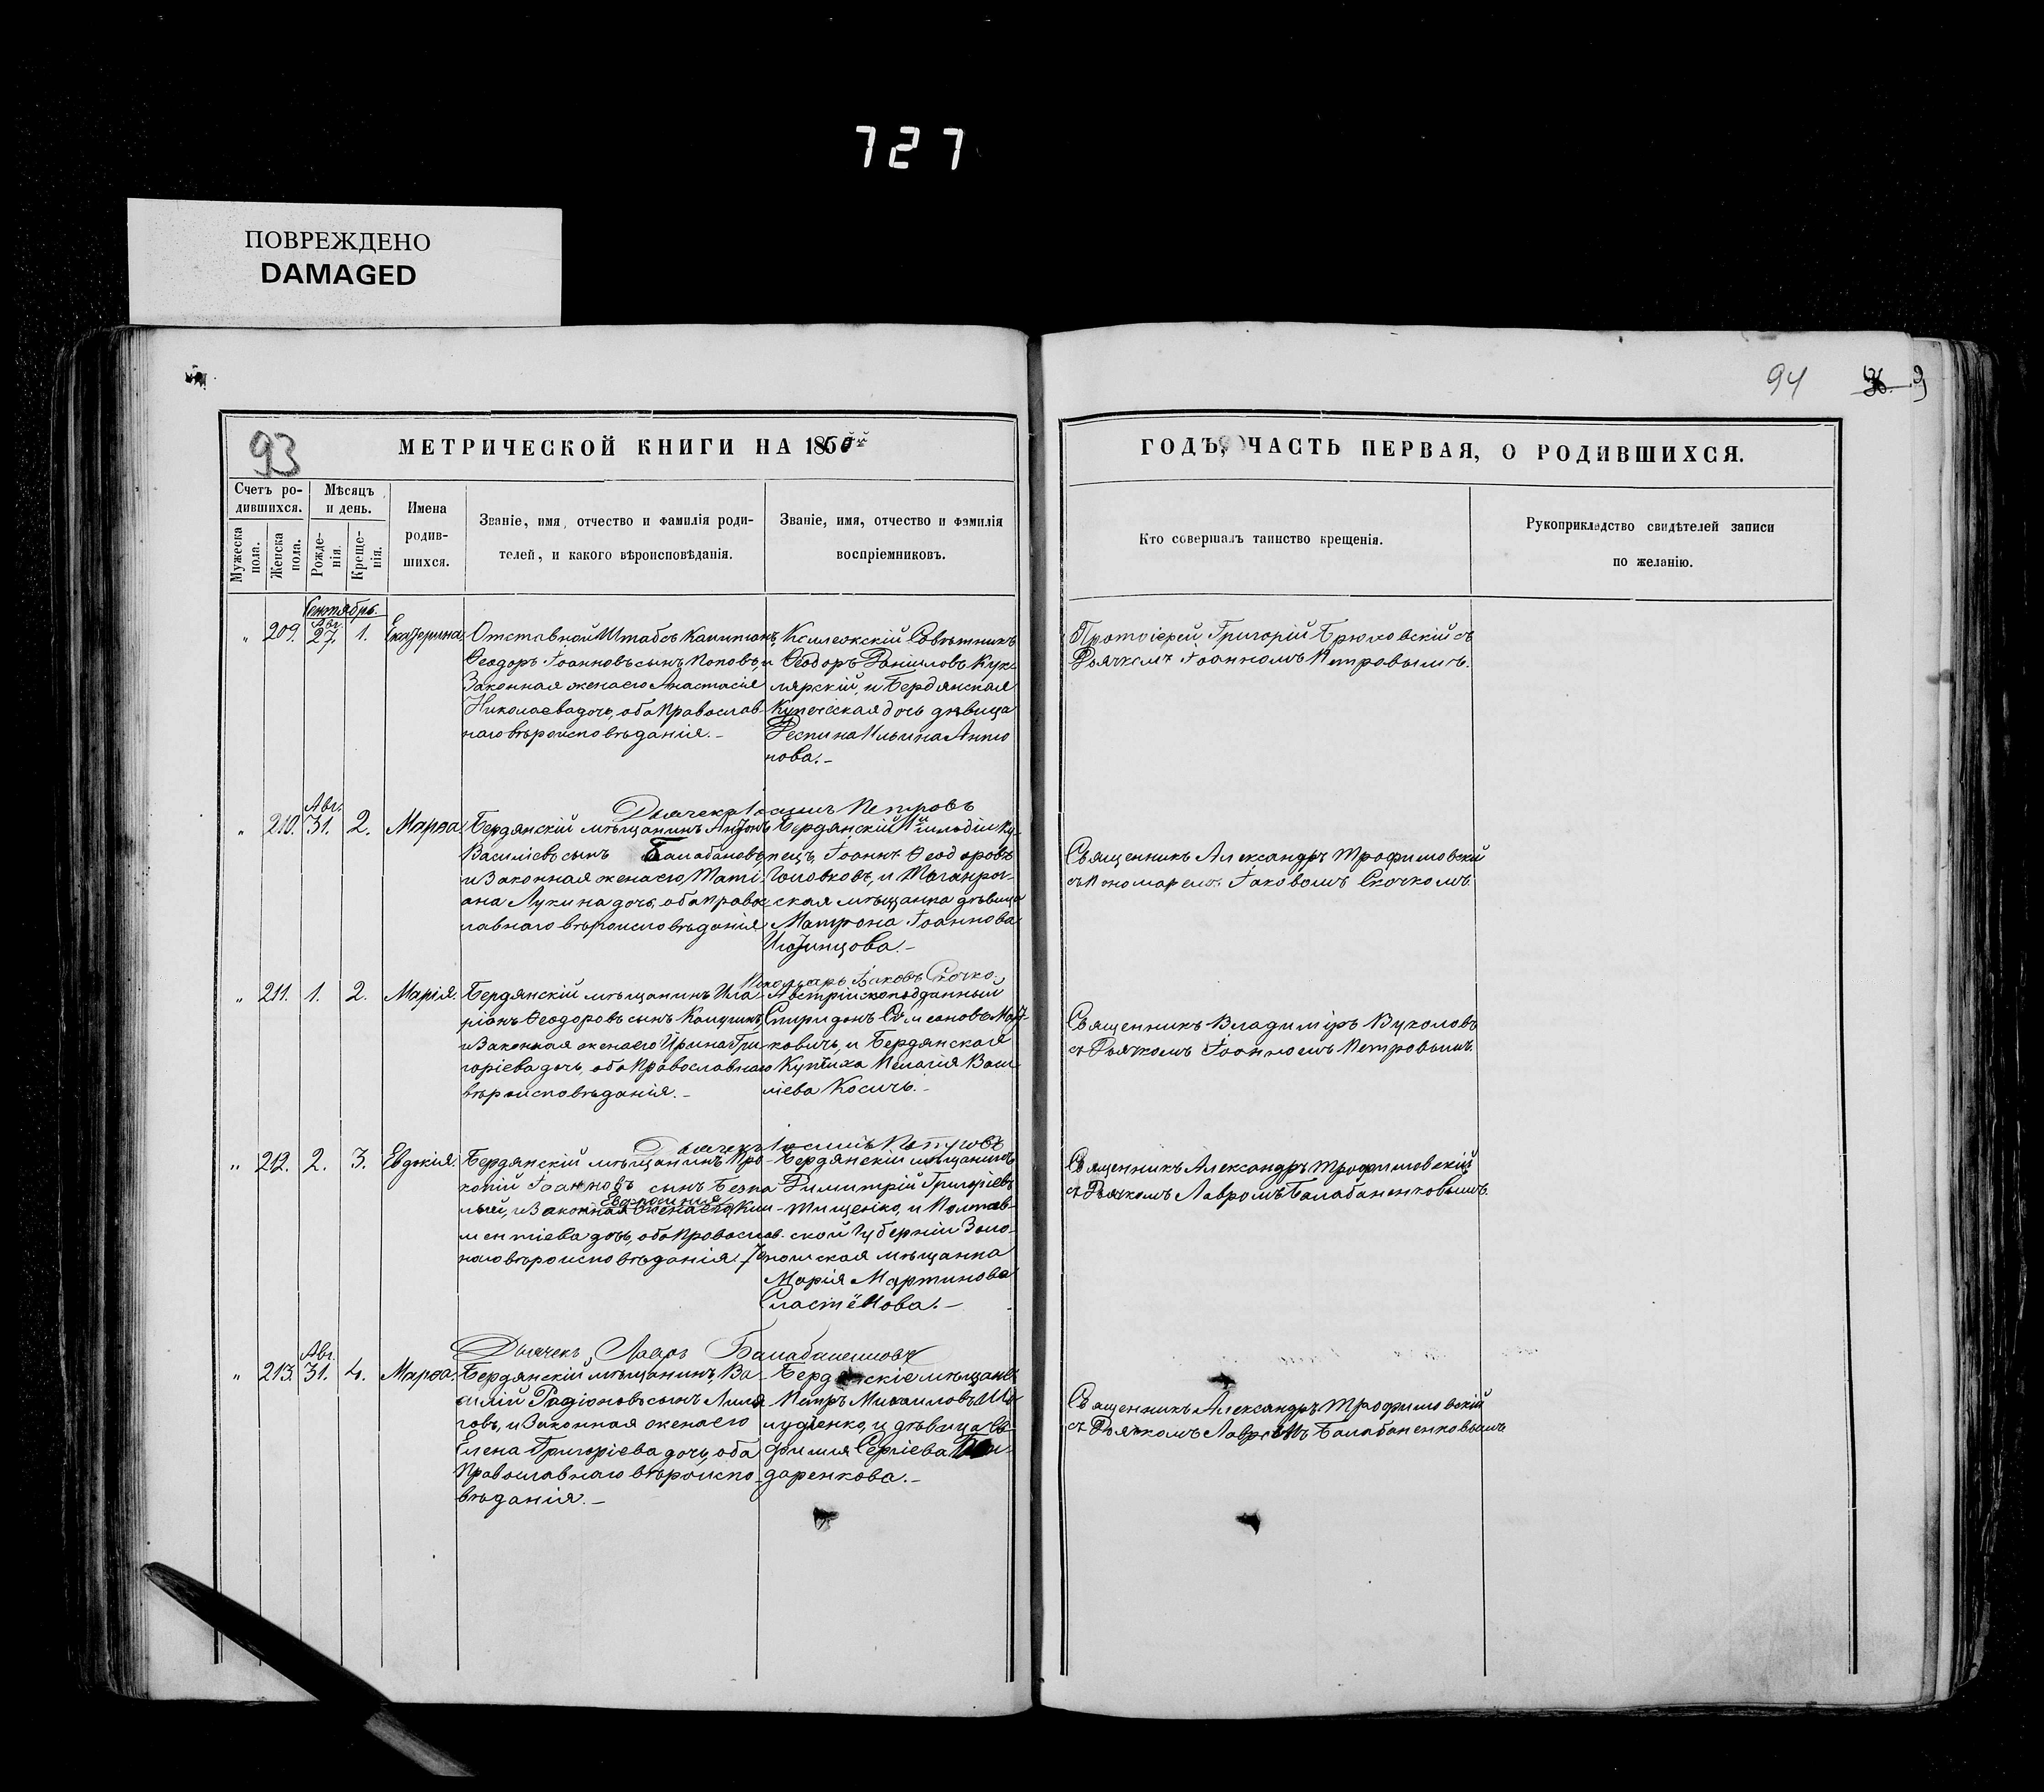 727
ПОВРЕЖДЕНО
DAMAGED
94
93
МЕТРИЧЕСКОЙ КНИГИ НА 1860й
ГОДЪ, ЧАСТЬ ПЕРВАЯ, О РОДИВШИХСЯ.
Счетъ ро-
дившихся.
Мужеска
пола.
Женска
пола.
Мѣсяцъ
и день.
Рожде-
нія.
Креще-
нія.
Имена
родив-
шихся.
Званіе, имя, отчество и фамилія роди-
телей, и какого вѣроисповѣданія.
Званіе, имя, отчество и фамилія
воспріемниковъ.
Кто совершалъ таинство крещенія.
Рукоприкладство свидѣтелей записи
по желанію.
Сентябрь.
" 209. Авг. 27. 1. Екатерина
Отставной Штабсъ Капитанъ
Ѳеодоръ Іоанновъ сынъ Поповъ, и
Законная жена его Анастасія
Николаева дочь, оба Православ-
наго вѣроисповѣданія. –
Коллежскій Совѣтникъ
Ѳеодоръ Даниловъ Кук-
лярскій, и Бердянская
Купеческая дочь дѣвица
Деспина Ильина Анто
нова. –
Протоіерей Григорій Брюховскій съ
Дьячкомъ Іоанномъ Петровымъ.
Дьячекъ Іоаннъ Петровъ
" 210. Авг. 31. 2. Марѳа
Бердянскій мѣщанинъ Антонъ
Василіевъ сынъ Балабановъ
и Законная жена его, Тати-
ана Лукина дочь, оба правос-
лавнаго вѣроисповѣданія
Бердянскій гильдіи ку-
пецъ Іоаннъ Ѳеодоровъ
Головковъ, и Таганрог-
ская мѣщанка дѣвица
Матрона Іоаннова
Священникъ Александръ Трофимовскій
съ Пономаремъ Іаковомъ Скочкомъ.
Пономарь Іаковъ Скочко.
" 211. 1. 2. Марія.
Бердянскій мѣщанинъ Ила-
ріонъ Ѳеодоровъ сынъ
и Законная жена его Ирина Гри-
горіева дочь, оба Православнаго
вѣроисповѣданія. –
Австрійскоподданный
Спиридонъ Симеоновъ
ковичь, и Бердянская
Купчиха Пелагія Васи-
ліева Косичь. –
Священникъ Владиміръ Вуколовъ
съ Дьячкомъ Іоанномъ Петровымъ.
Дьячекъ Іоаннъ Петровъ
" 212. 2. 3. Евдокія.
Бердянскій мѣщанинъ Про-
копій Іоанновъ сынъ Безпа
лый, и Законная жена его, Кли-
ментіева дочь, оба Православ-
наго вѣроисповѣданія. –
Бердянскій мѣщанинъ
Димитрій Григоріевъ
Тищенко, и Полтав-
ской Губерніи Золо-
тоношская мѣщанка
Марія Мартинова
Сластёнова. –
Священникъ Александръ Трофимовскій
съ Дьячкомъ Лавромъ Балабаненковымъ.
Дьячекъ Лавръ Балабаненковъ
" 213. Авг. 31. 4. Марѳа.
Бердянскій мѣщанинъ Ва-
силій Родіоновъ сынъ
говъ, и Законная жена его
Елена Григоріева дочь, оба
Православнаго вѣроиспо-
вѣданія. –
Бердянскіе мѣщане
Петръ Михаиловъ
лудченко, и дѣвица Ев
фимія Сергіева
даренкова. –
Священникъ Александръ Трофимовскій
съ Дьячкомъ Лавромъ Балабаненковымъ